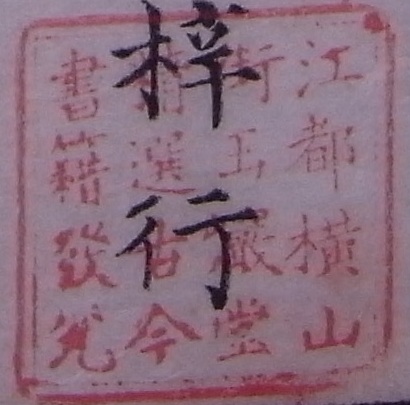 梓行
江都横山
街玉巖堂
精選古今
書籍發兌